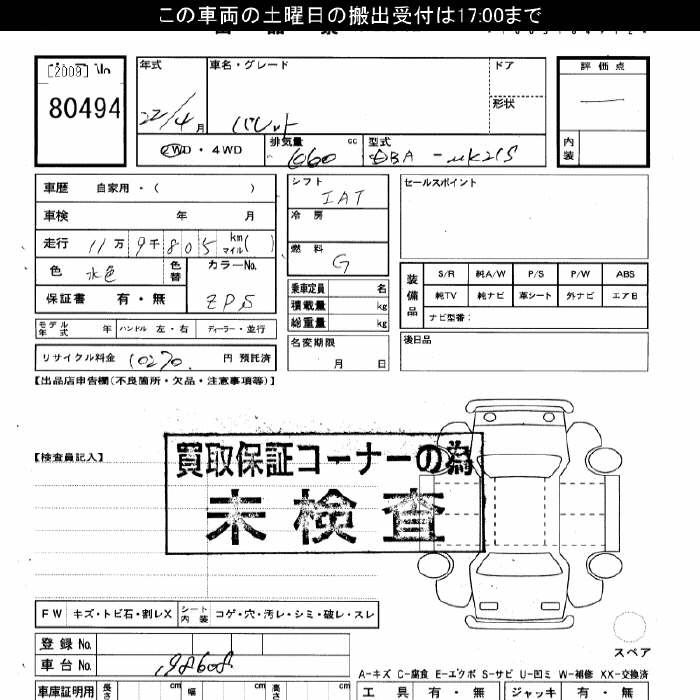 この車両の土曜日の搬出受付は17:00まで
[2009] No
80494
年式 22/4月
車名・グレード パレット
ドア
形状
評価点
—
内装
2WD・4WD
排気量 660 cc
型式 DBA-MK21S
車歴 自家用・( )
車検 年 月
走行 11万9千805 km マイル( )
色 水色 色替
カラーNo. ZPS
保証書 有・無
シフト IAT
冷房
燃料 G
乗車定員 名
積載量 kg
総重量 kg
名変期限
月 日
セールスポイント
装備品
S/R 純A/W P/S P/W ABS
純TV 純ナビ 革シート 外ナビ エアB
ナビ型番:
後日品
モデル年式 年 ハンドル 左・右 ディーラー・並行
リサイクル料金 10270 円 預託済
【出品店申告欄(不良箇所・欠品・注意事項等)】
【検査員記入】
買取保証コーナーの為
未検査
FW キズ・トビ石・割レX シート内装 コゲ・穴・汚レ・シミ・破レ・スレ
スペア
登録No.
車台No. 198608
A-キズ C-腐食 E-エクボ S-サビ U-凹ミ W-補修 XX-交換済
車庫証明用 長さ cm 幅 cm 高さ cm
工具 有・無 ジャッキ 有・無